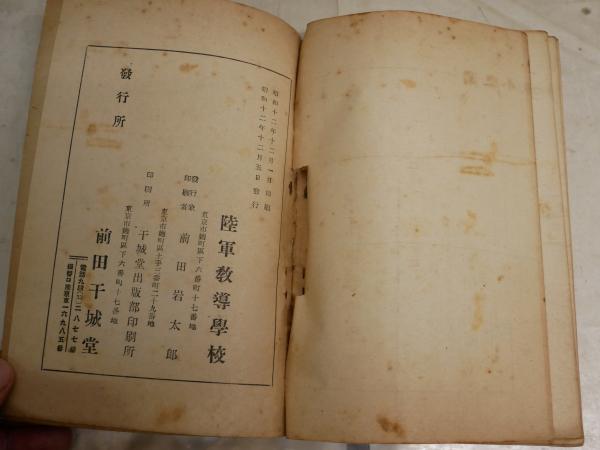 昭和十二年十二月一日印刷
昭和十二年十二月五日發行
陸軍教導學校
東京市麹町區下六番町十七番地
發行兼
印刷者
前田岩太郎
東京市麹町區
番町二十九番地
印刷所
干城堂出版部印刷所
東京市麹町區下六番町十七番地
發行所
前田干城堂
電話九段(33)二八七七番
振替口座東京一六九八五番